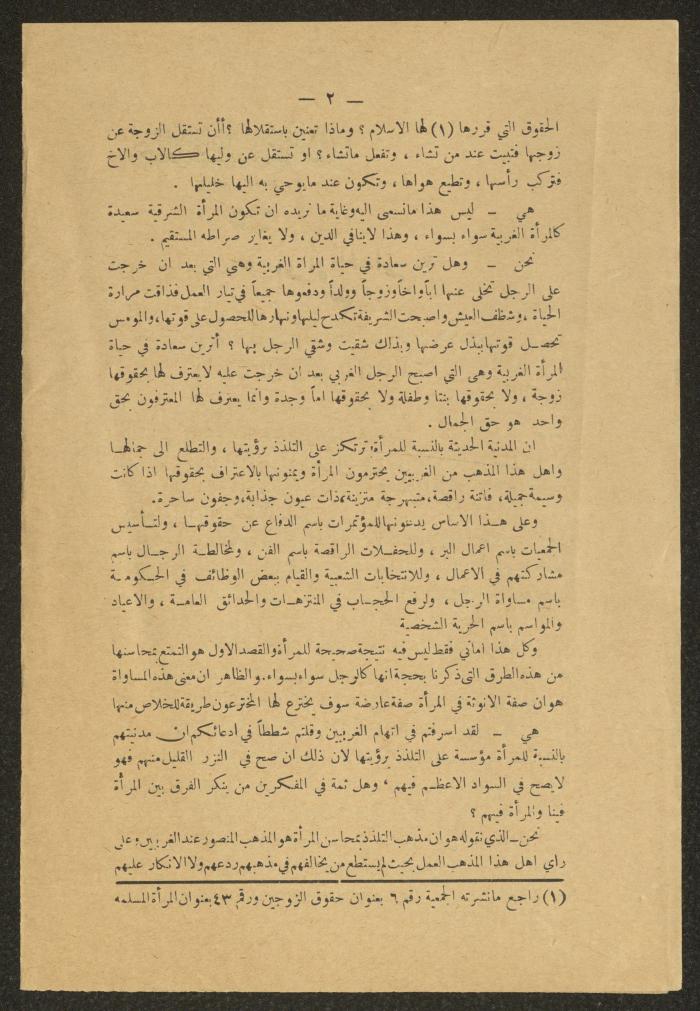 — ٢ —
الحقوق التي قررها (١) لها الاسلام ؟ وماذا تعنين باستقلالها ؟ أأن تستقل الزوجة عن
زوجها فتبيت عند من تشاء ، وتفعل ماتشاء ؟ او تستقل عن وليها كالاب والاخ
فتركب رأسها ، وتطيع هواها ، وتكون عند مايوحي به اليها خليلها .
هي – ليس هذا مانسعى اليه وغاية ما نريده ان تكون المرأة الشرقية سعيدة
كالمرأة الغربية سواء بسواء ، وهذا لاينافي الدين ، ولا يغاير صراطه المستقيم .
نحن – وهل ترين سعادة في حياة المراة الغربية وهي التي بعد ان خرجت
على الرجل تخلى عنها اباً واخاً وزوجاً وولداً ودفعوها جميعاً في تيار العمل فذاقت مرارة
الحياة ، وشظف العيش واصبحت الشريفة تكدح ليلها ونهارها للحصول على قوتها، والمومس
تحصل قوتها ببذل عرضها وبذلك شقيت وشقي الرجل بها ؟ أترين سعادة في حياة
المرأة الغربية وهي التي اصبح الرجل الغربي بعد ان خرجت عليه لايعترف لها بحقوقها
زوجة ، ولا بحقوقها بنتا وطفلة ولا بحقوقها اماً وجدة وانما يعترف لها المعترفون بحق
واحد هو حق الجمال .
ان المدنية الحديثة بالنسبة للمرأة ترتكز على التلذذ برؤيتها ، والتطلع الى جمالها
واهل هذا المذهب من الغربيين يحترمون المرأة ويمنونها بالاعتراف بحقوقها اذا كانت
وسيمة جميلة، فاتنة راقصة، متبهرجة متزينة، ذات عيون جذابة، وجفون ساحرة.
وعلى هذا الاساس يدعونها للمؤتمرات باسم الدفاع عن حقوقها ، ولتأسيس
الجمعيات باسم اعمال البر ، وللحفلات الراقصة باسم الفن ، ولمخالطة الرجال باسم
مشاركتهم في الاعمال ، وللانتخابات الشعبية والقيام ببعض الوظائف في الحكومة
باسم مساواة الرجل ، ولرفع الحجاب في المنتزهات والحدائق العامة ، والاعياد
والمواسم باسم الحرية الشخصية
وكل هذا اماني فقط ليس فيه نتيجة صحيحة للمرأة والقصد الاول هو التمتع بمحاسنها
من هذه الطرق التي ذكرنا بحجة انها كالرجل سواء بسواء. والظاهر ان معنى هذه المساواة
هو ان صفة الانوثة في المرأة صفة عارضة سوف يخترع لها المخترعون طريقة للخلاص منها
هي – لقد اسرفتم في اتهام الغربيين وقلتم شططاً في ادعائكم ان مدنيتهم
بالنسبة للمرأة مؤسسة على التلذذ برؤيتها لان ذلك ان صح في النزر القليل منهم فهو
لايصح في السواد الاعظم فيهم ، وهل ثمة في المفكرين من ينكر الفرق بين المرأة
فينا والمرأة فيهم ؟
نحن – الذي نقوله هو ان مذهب التلذذ بمحاسن المرأة هو المذهب المنصور عند الغربيين وعلى
رأي اهل هذا المذهب العمل بحيث لم يستطع من يخالفهم في مذهبهم ردعهم ولا الانكار عليهم
(١) راجع مانشرته الجمعية رقم ٦ بعنوان حقوق الزوجين ورقم ٤٣ بعنوان المرأة المسلمه